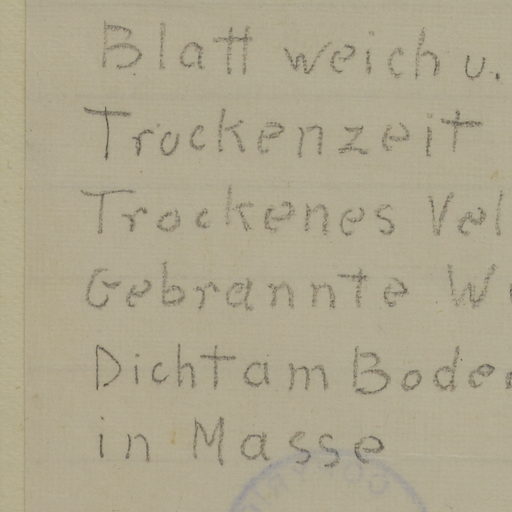 Blatt weich u.
Trockenzeit
Trockenes Vel
Gebrannte W
Dicht am Boden
in Masse